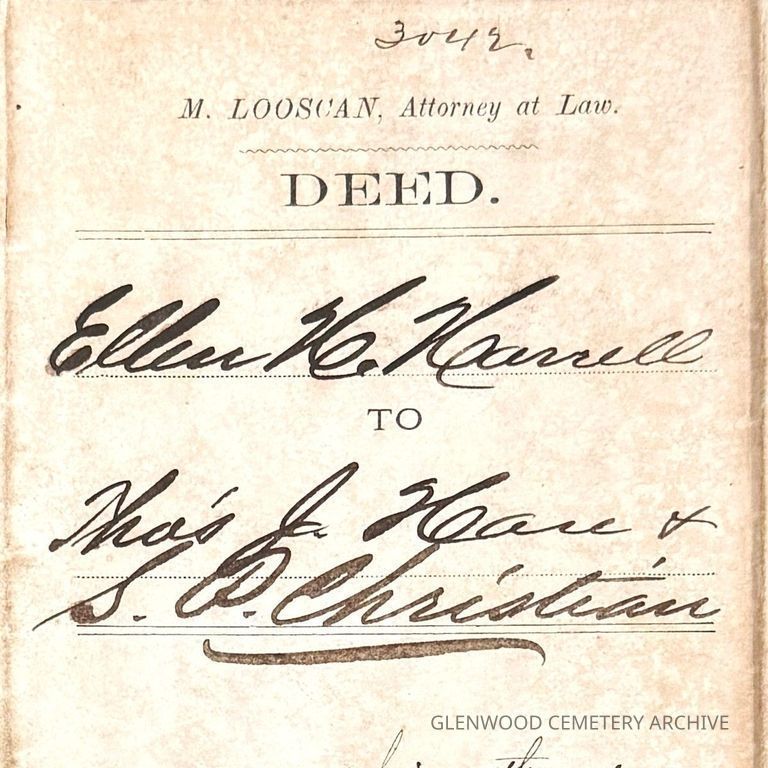 3042.
M. LOOSCAN, Attorney at Law.
DEED.
Ellen H. Harrell
TO
Tho's J. Hare &
S. P. Christian
GLENWOOD CEMETERY ARCHIVE